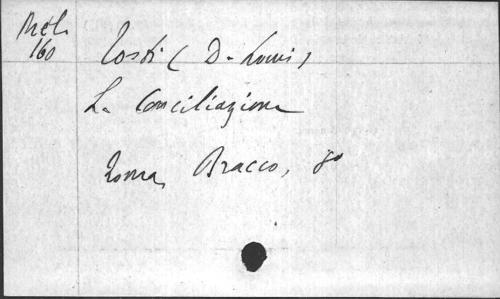 Mél.
160
Tosti (D. Louis)
La Conciliazione
Roma, Bracco, 8°